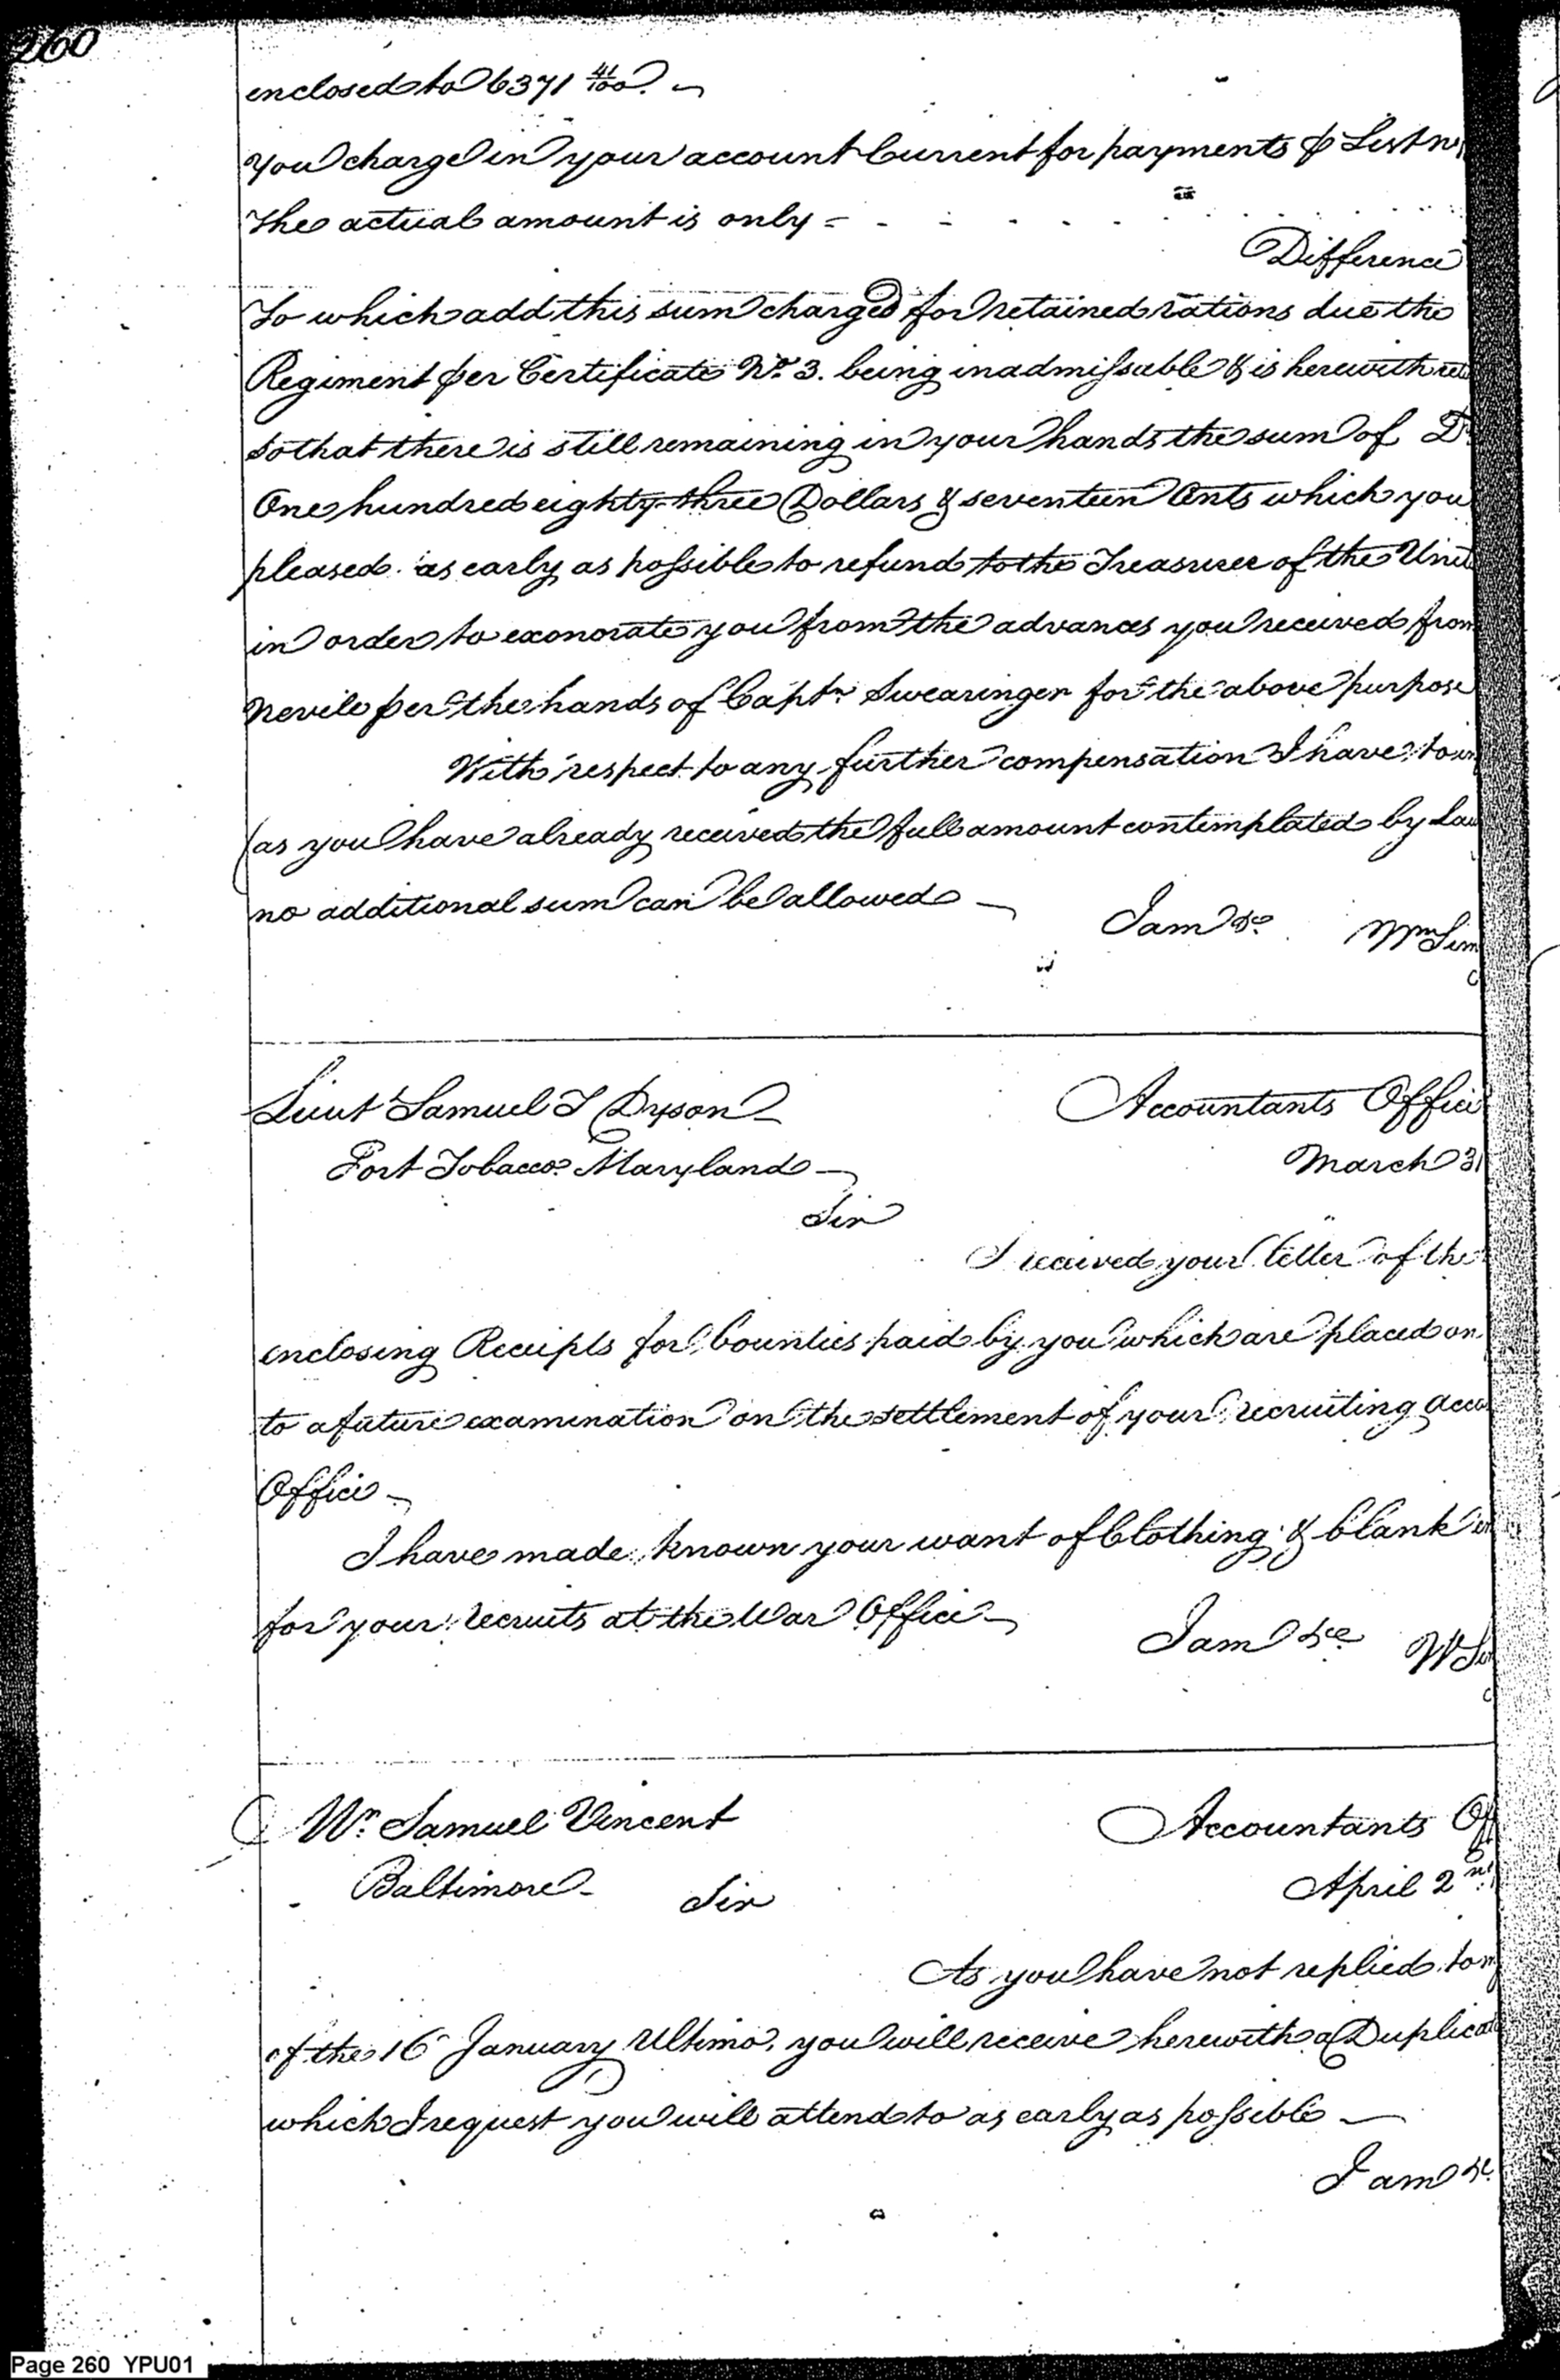 260
enclosed to 6371 41/100. ~
You charge in your account Current for payments ⅌ List
The actual amount is only = - - - - -
Difference
To which add this sum charged for retained rations due the
Regiment per Certificate No. 3. being inadmissable & is herewith
so that there is still remaining in your hands the sum of D
One hundred eighty-three Dollars & seventeen Cents which you
pleased as early as possible to refund to the Treasurer of the Unit
in order to exonorate you from the advances you received from
Nevile per the hands of Captn. Swearingen for the above purpose
With respect to any further compensation I have to
(as you have already received the full amount contemplated by Law
no additional sum can be allowed —
I am &c.
Wm Sim
Lieut Samuel T Dyson —
Accountants Office
Port Tobacco Maryland —
March 31
Sir
I received your letter of the
enclosing Receipts for bounties paid by you which are placed on
to a future examination on the settlement of your recruiting acco
Office —
I have made known your want of Clothing & blank
for your recruits at the War Office —
I am &ce
W Si
Mr. Samuel Vincent
Accountants Off
Baltimore —
April 2nd
Sir
As you have not replied to m
of the 16 January Ultimo, you will receive herewith a Duplicat
which I request you will attend to as early as possible —
I am &c.
Page 260 YPU01